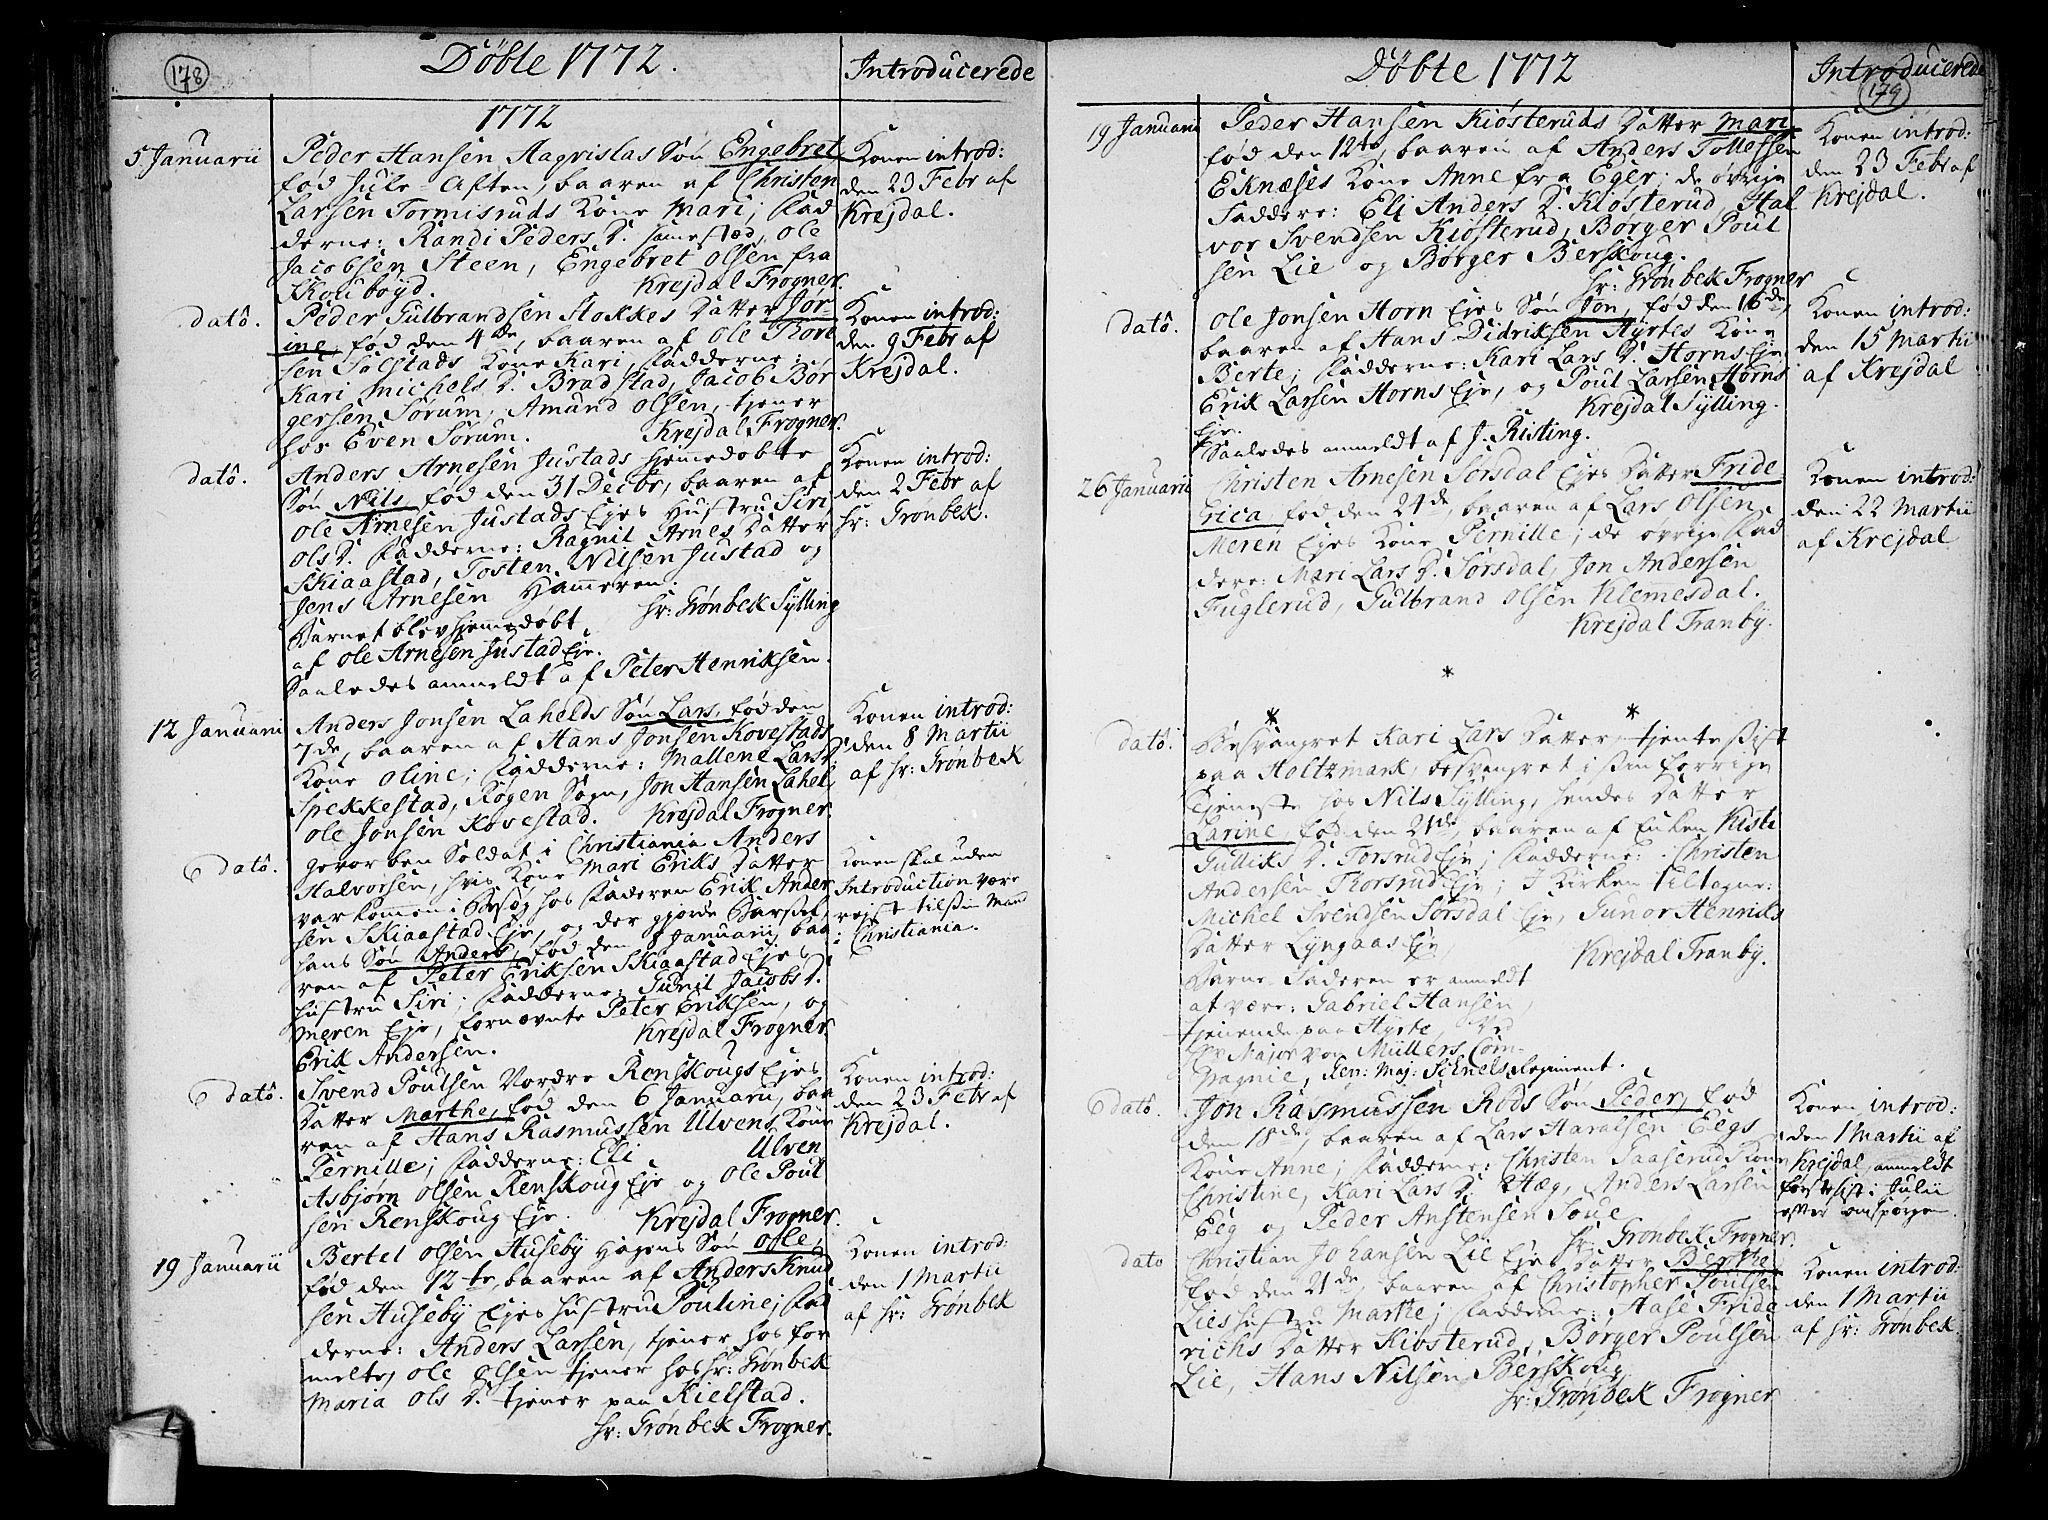 178
Döbte 1772.
Introducerede
1772
5 Januarii
Peder Hansen Aagvislas Søn Engebret
fød Jule-Aften, baaren af Christen
Larsen Tormisruds Kone Mari; Fad
derne: Randi Peders D. sammestæd, Ole
Jacobsen Steen, Engebret Olsen fra
Skoubøyd. Krejdal Frogner.
Konen introd:
den 23 Febr af
Krejdal.
dato.
Peder Gulbrandsen Stokkes Datter Jør-
ine, fød den 4de, baaren af Ole Thore
sen Solstads Kone Kari, Fadderne:
Kari Michels D. Bradstad, Jacob Bør
gersen Sørum, Amund Olsen, tjener
hos Even Sørum. Krejdal Frogner.
Konen introd:
den 9 Febr af
Krejdal.
dato.
Anders Arnesen Justads hjemmedøbte
Søn Nils, fød den 31 Decbr, baaren af
Ole Arnesen Justads Ejes Hustru Siri
Ols D. Fadderne: Ragnil Arnes Datter
Skiaastad, Tosten Nilsen Justad og
Jens Arnesen Hammeren.
Barnet blev hjemmedøbt Hr: Grønbek Sylling
af Ole Arnesen Justad Eje.
Saaledes anmeldt af Peter Henriksen.
Konen introd:
den 2 Febr af
Hr: Grønbek.
12 Januarii
Anders Jonsen Lahelds Søn Lars, fød den
7de, baaren af Hans Jonsen Kovestads
Kone Oline; Fadderne: Mallene Lars D.
Spekkestad, Røgen Sogn, Jon Hansen Lahel,
Ole Jonsen Kovestad. Krejdal Frogner.
Konen introd:
den 8 Martii
af Hr: Grønbek
dato.
Gevorben Soldat i Christiania Anders
Halvorsen, hvis Kone Mari Eriks Datter
var kommen i Besøg hos Faderen Erik Ander
sen Skiaastad Eje, og der gjorde Barsel,
hans Søn Anders, fød den 8 Januarii, baa
ren af Peter Eriksen Skiaastad Ejes
Hustru Siri; Fadderne: Gunil Jacobs D.
Meren Eje, fornævnte Peter Eriksen, og
Erik Andersen. Krejdal Frogner
Konen skal uden
Introduction være
rejst til sin Mand
i Christiania.
dato.
Svend Poulsen Nordre Renskougs Ejes
Datter Marthe, fød den 6 Januarii, baa
ren af Hans Rasmussen Ulvens Kone
Pernille; Fadderne: Eli Ulven
Asbjørn Olsen Renskoug Eje og Ole Poul
sen Renskoug Eje. Krejdal Frogner.
Konen introd:
den 23 Febr af
Krejdal.
19 Januarii
Bertel Olsen Huseby Hagens Søn Ole,
fød den 12te, baaren af Anders Knud
sen Huseby Ejes Hustru Pouline; Fad
derne: Anders Larsen, tjener hos for
melte, Ole Olsen tjener hos Hr: Grønbek
Maria Ols D. tjener paa Kielstad.
Hr: Grønbek Frogner.
Konen introd:
den 1 Martii
af Hr: Grønbek
Döbte 1772
Introducerede
179
19 Januarii
Peder Hansen Kiøsteruds Datter Mari
fød den 12te, baaren af Anders Tollefsen
Eknæses Kone Anne fra Eger; de øvrige
Faddere: Eli Anders D. Kiøsterud, Hal
vor Svendsen Kiøsterud, Børger Poul
sen Lie og Børger Berskoug.
Hr: Grønbek Frogner
Konen introd:
den 23 Febr af
Krejdal.
dato.
Ole Jonsen Horn Ejes Søn Jon, fød den 16de,
baaren af Hans Didriksen Hyrtes Kone
Berte; Fadderne: Kari Lars D. Horns Eje
Erik Larsen Horns Eje, og Poul Larsen Horns
Eje. Krejdal Sylling.
Saaledes anmeldt af J. Risting.
Konen introd:
den 15 Martii
af Krejdal
26 Januarii
Christen Arnesen Sørsdal Ejes Datter Fride-
rica, fød den 24de, baaren af Lars Olsen
Meren Ejes Kone Pernille; de øvrige Fad
dere: Mari Lars D. Sørsdal, Jon Andersen
Fuglerud, Gulbrand Olsen Klemesdal.
Krejdal Tranby.
Konen introd:
den 22 Martii
af Krejdal
*
* *
dato.
Besvangret Kari Lars Datter, tjente sist
paa Holtzmark, besvangret i sin forrige
Tjeneste hos Nils Sylling, hendes Datter
Larine, fød den 21de, baaren af Enken Kisti
Gulliks D. Torsrud Eje; Fadderne: Christen
Andersen Thorsrud Eje; I Kirken tiltagne:
Michel Svendsen Sørsdal Eje, Gunor Henriks
Datter Lyngaas Eje
Krejdal Tranby.
Barne Faderen er anmeldt
at være: Gabriel Hansen,
tjenende paa Hyrte, ved
Hr Major von Müllers Com-
pagnie, Gen: Maj: Schnels Regiment.
dato.
Jon Rasmussen Røds Søn Peder, fød
den 18de, baaren af Lars Haralsen Eegs
Kone Anne; Fadderne: Christen Gaaserud Kone
Christine, Kari Lars D. Hæg, Anders Larsen
Eeg og Peder Anstensen Foue
Hr: Grønbek Frogner.
Konen introd:
den 1 Martii af
Krejdal, anmeldt
først sist i Julii
efter omspørgen.
dato
Christian Johansen Lie Ejes Datter Berthe,
fød den 21de, baaren af Christopher Poulsen
Lies Hustru Marthe; Fadderne: Aase Fride
richs Datter Kiøsterud, Børger Poulsen
Lie, Hans Nilsen Berskoug
Hr: Grønbek Frogner
Konen introd:
den 1 Martii
af Hr: Grønbek